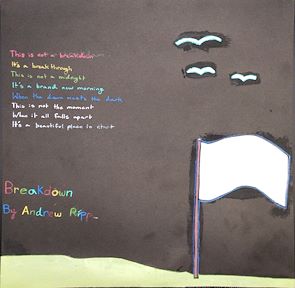 This is not a breakdown
It's a breakthrough
This is not a midnight
It's a brand new morning
When the dawn meets the dark
This is not the moment
When it all falls apart
It's a beautiful place to start
Breakdown
By Andrew Ripp